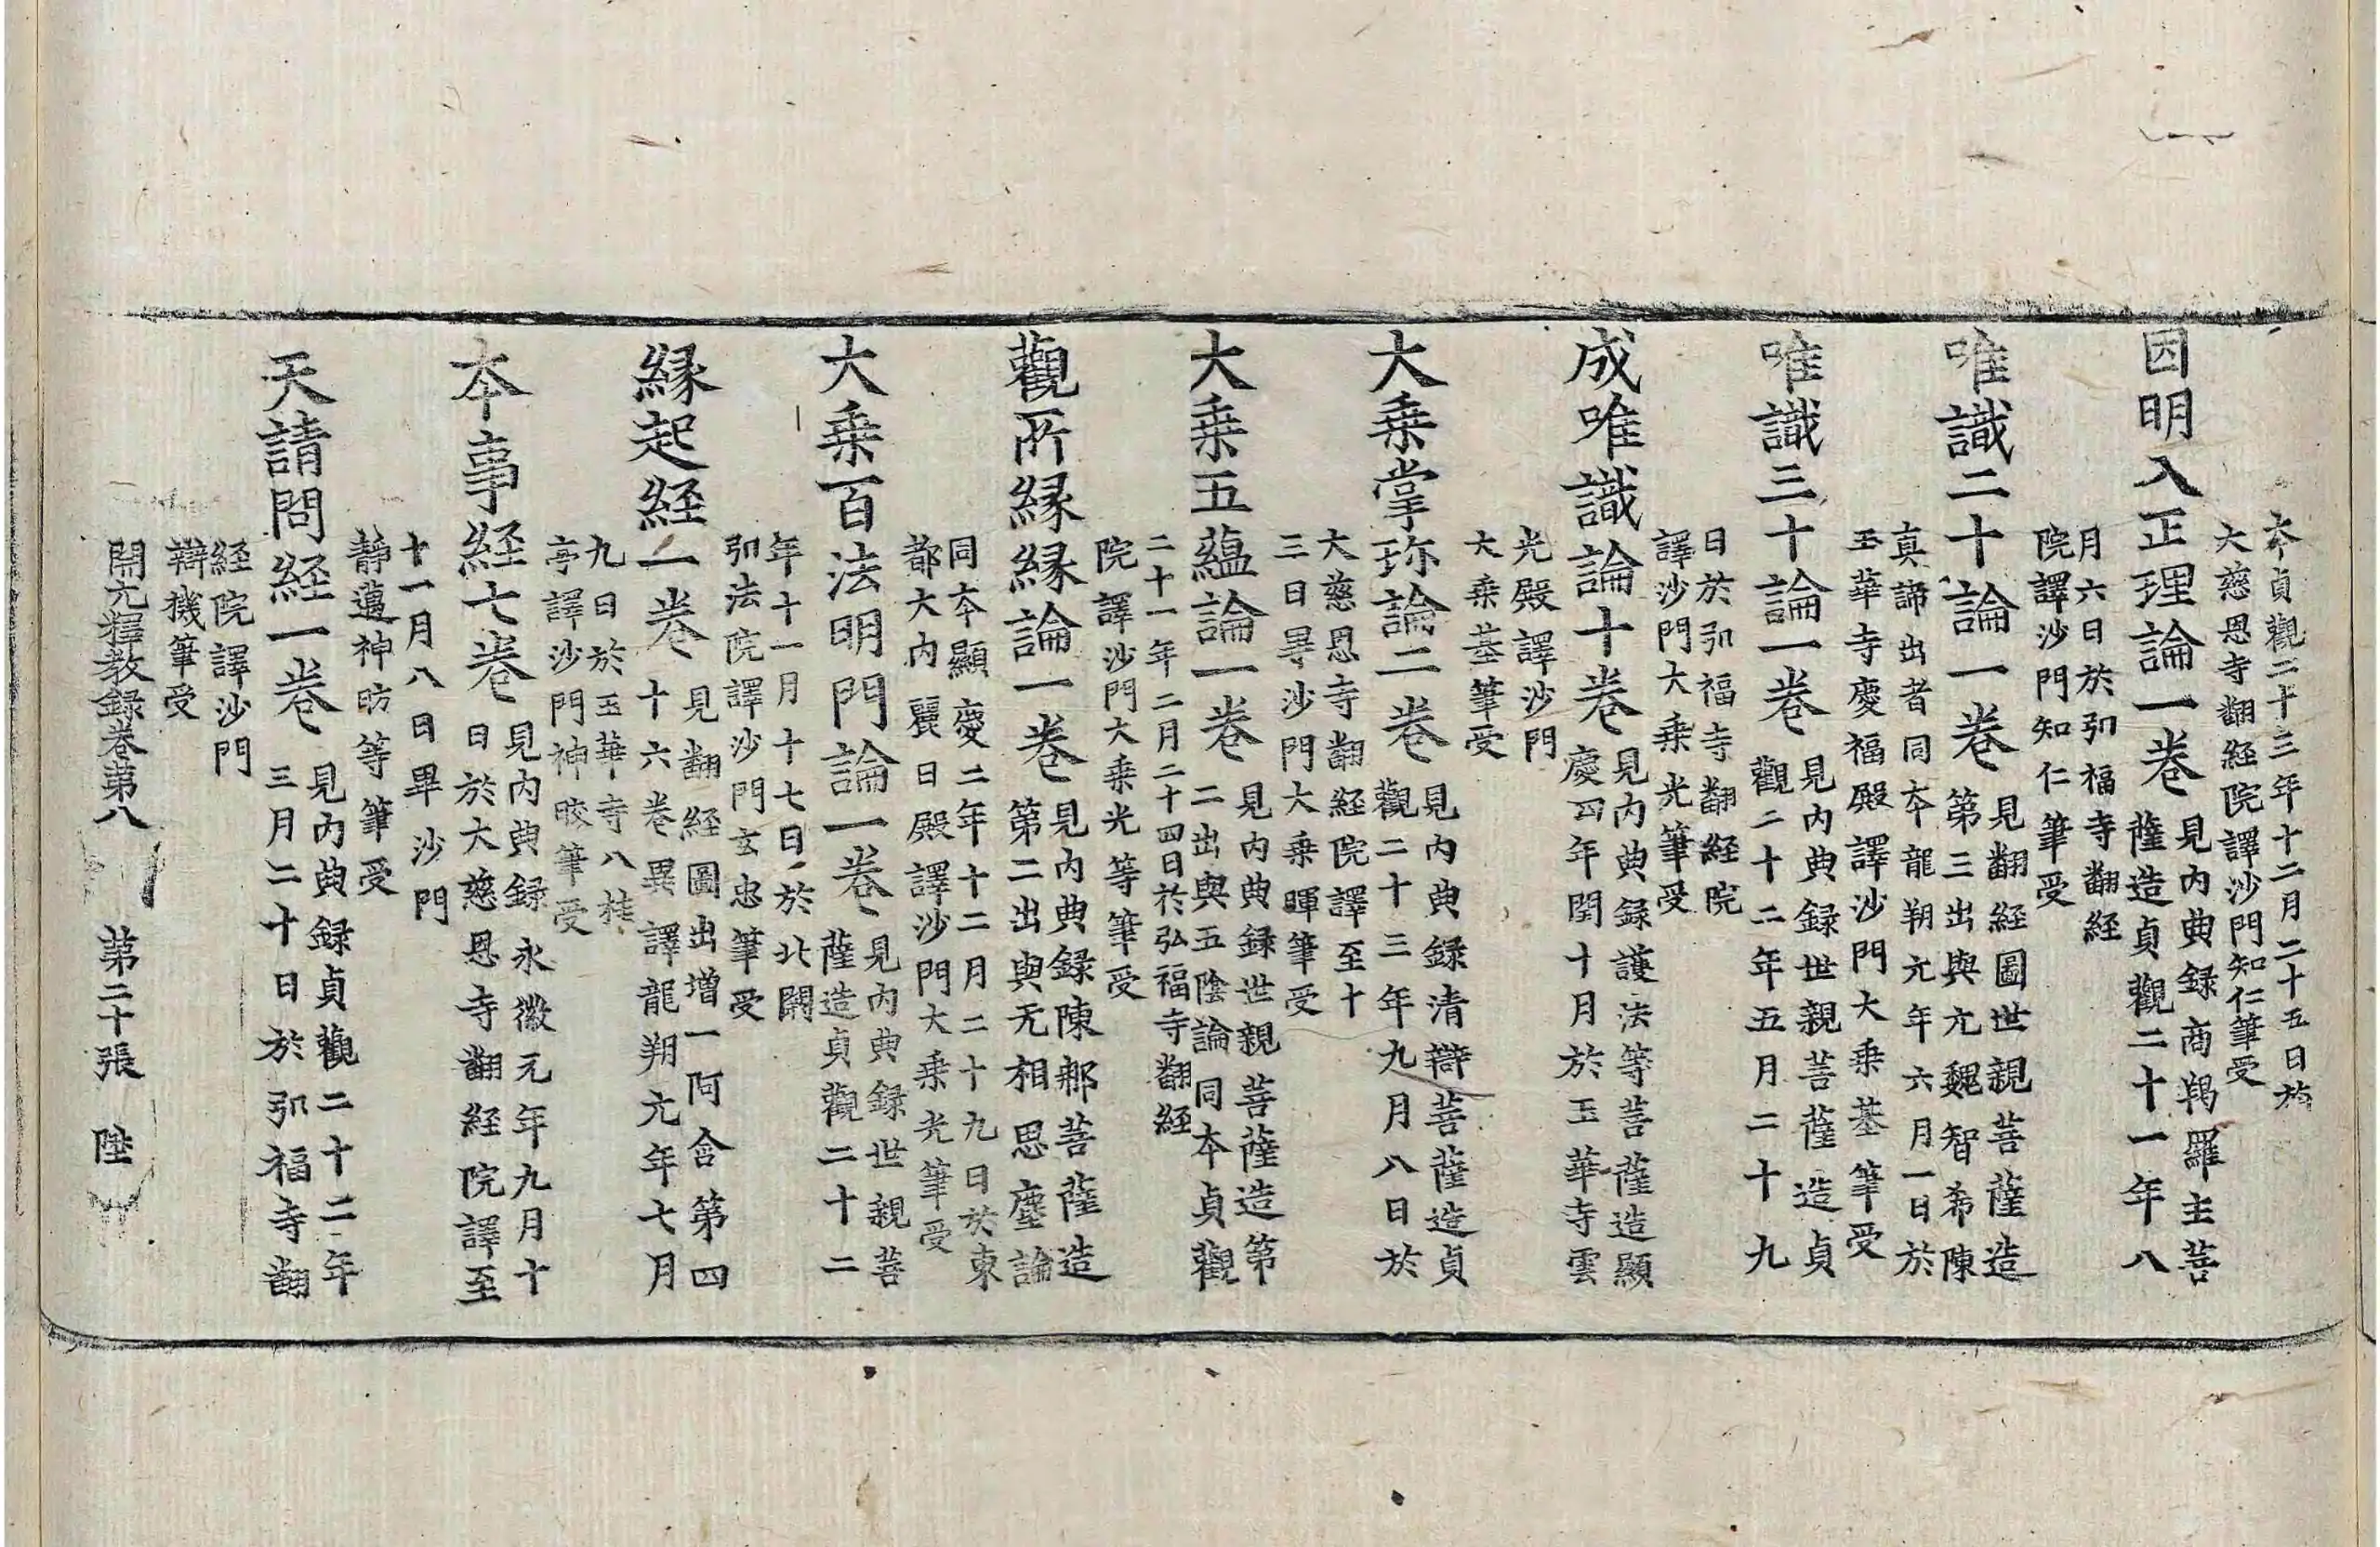 本貞觀二十三年十二月二十五日於
大慈恩寺翻経院譯沙門知仁筆受
因明入正理論一卷
見內典録商羯羅主菩
薩造貞觀二十一年八
月六日於弘福寺翻経
院譯沙門知仁筆受
唯識二十論一卷
見翻経圖世親菩薩造
第三出與元魏智希陳
真諦出者同本龍朔元年六月一日於
玉華寺慶福殿譯沙門大乗基筆受
唯識三十論一卷
見內典録世親菩薩造貞
觀二十二年五月二十九
日於弘福寺翻経院
譯沙門大乗光筆受
成唯識論十卷
見內典録護法等菩薩造顯
慶四年閏十月於玉華寺雲
光殿譯沙門
大乗基筆受
大乗掌珎論二卷
見內典録清辯菩薩造貞
觀二十三年九月八日於
大慈恩寺翻経院譯至十
三日畢沙門大乗暉筆受
大乗五蘊論一卷
見內典録世親菩薩造第
二出與五陰論同本貞觀
二十一年二月二十四日於弘福寺翻経
院譯沙門大乗光等筆受
觀所緣緣論一卷
見內典録陳那菩薩造
第二出與无相思塵論
同本顯慶二年十二月二十九日於東
都大內麗日殿譯沙門大乗光筆受
大乗百法明門論一卷
見內典録世親菩
薩造貞觀二十二
年十一月十七日於北闕
弘法院譯沙門玄忠筆受
緣起経一卷
見翻経圖出增一阿含第四
十六卷異譯龍朔元年七月
九日於玉華寺八桂
亭譯沙門神晈筆受
本事経七卷
見內典録永徽元年九月十
日於大慈恩寺翻経院譯至
十一月八日畢沙門
靜邁神昉等筆受
天請問経一卷
見內典録貞觀二十二年
三月二十日於弘福寺翻
経院譯沙門
辯機筆受
開元釋教録卷第八 第二十張 陸